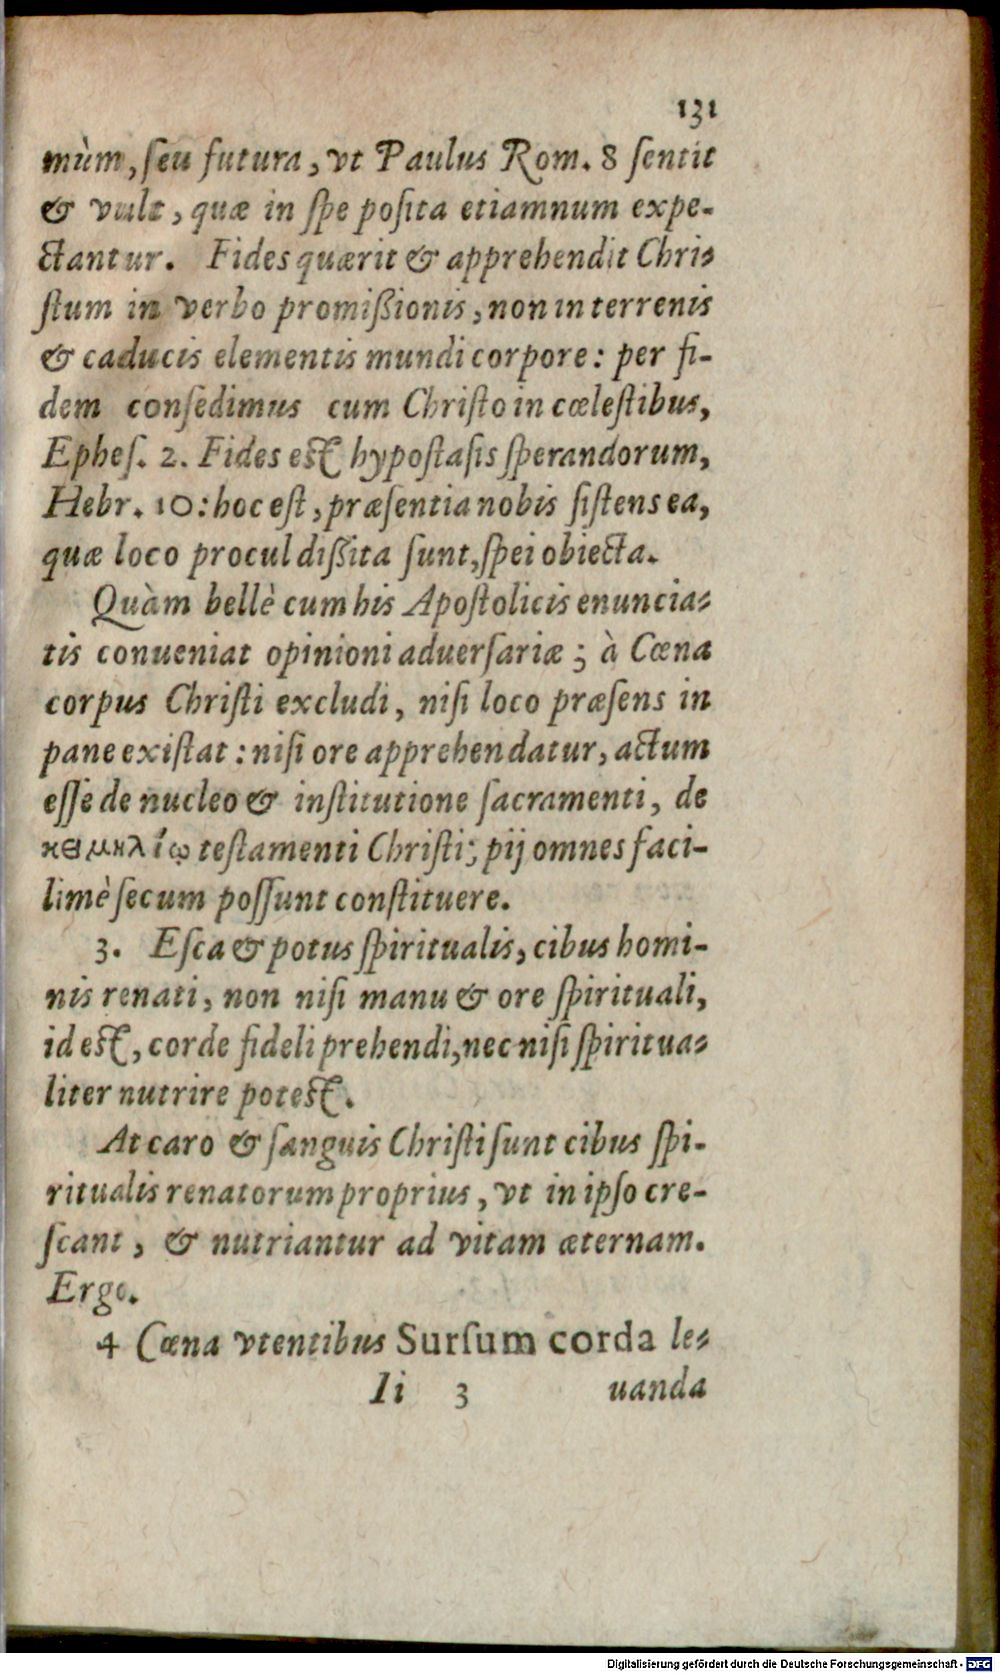 131
mùm, ſeu futura, vt Paulus Rom. 8 ſentit
& vult, quæ in ſpe poſita etiamnum expe-
ctantur. Fides quærit & apprehendit Chri-
ſtum in verbo promißionis, non in terrenis
& caducis elementis mundi corpore: per fi-
dem conſedimus cum Chriſto in cœleſtibus,
Epheſ. 2. Fides eſt hypoſtaſis ſperandorum,
Hebr. 10: hoc eſt, præſentia nobis ſiſtens ea,
quæ loco procul dißita ſunt, ſpei obiecta.
Quàm bellè cum his Apoſtolicis enuncia-
tis conueniat opinioni aduerſariæ; à Cœna
corpus Chriſti excludi, niſi loco præſens in
pane exiſtat: niſi ore apprehendatur, actum
eſſe de nucleo & inſtitutione ſacramenti, de
κειμηλίῳ teſtamenti Chriſti; pij omnes faci-
limè ſecum poſſunt conſtituere.
3. Eſca & potus ſpiritualis, cibus homi-
nis renati, non niſi manu & ore ſpirituali,
id eſt, corde fideli prehendi, nec niſi ſpiritua-
liter nutrire poteſt.
At caro & ſanguis Chriſti ſunt cibus ſpi-
ritualis renatorum proprius, vt in ipſo cre-
ſcant, & nutriantur ad vitam æternam.
Ergo.
4 Cœna vtentibus Surſum corda le-
Ii 3 uanda
Digitalisierung gefördert durch die Deutsche Forschungsgemeinschaft - DFG